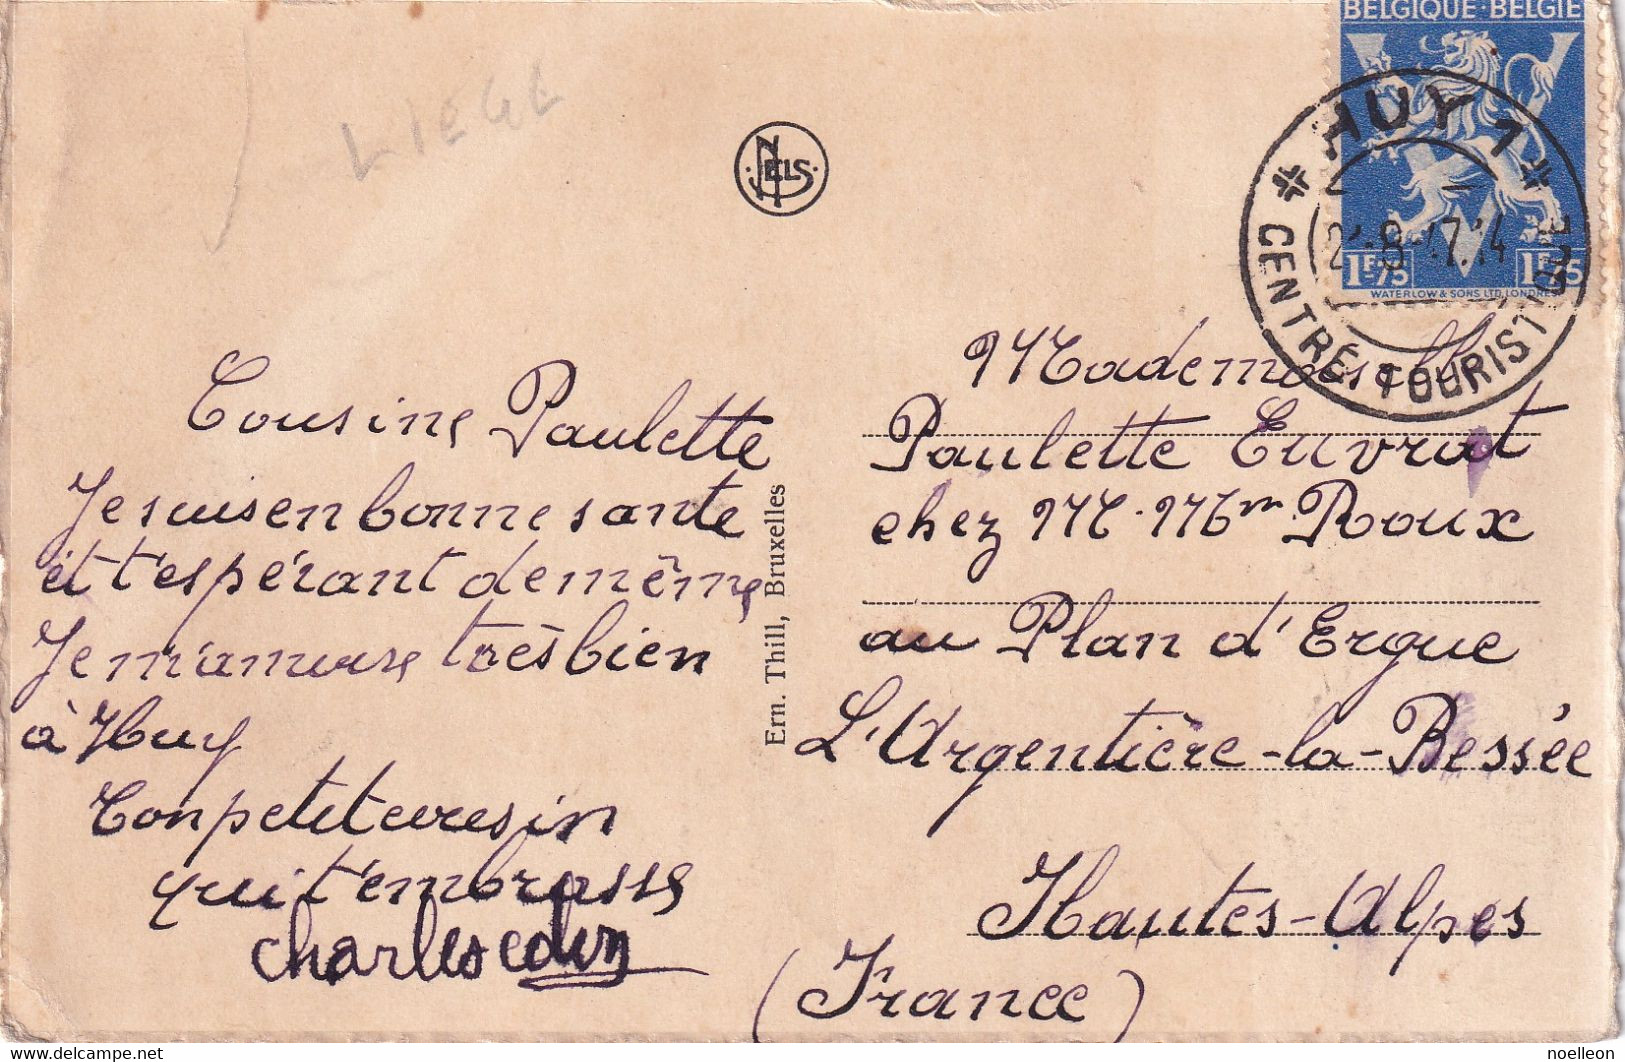 LIEGE
NELS
BELGIQUE·BELGIE
HUY 1
8-47.14
1F75 1F75
WATERLOW & SONS LTD, LONDRES
CENTRE TOURISTIQUE
Cousine Paulette
Je suis en bonne sante
et t'espérant de même
Je m'amuse très bien
à Huy
Ton petit cousin
qui t'embrasse
Charles
Ern. Thill, Bruxelles
Mademoiselle
Paulette Euvrat
chez M. Mm Roux
au Plan d'Ergue
L'Argentière-la-Bessée
Hautes-Alpes
(France)
delcampe.net
noelleon